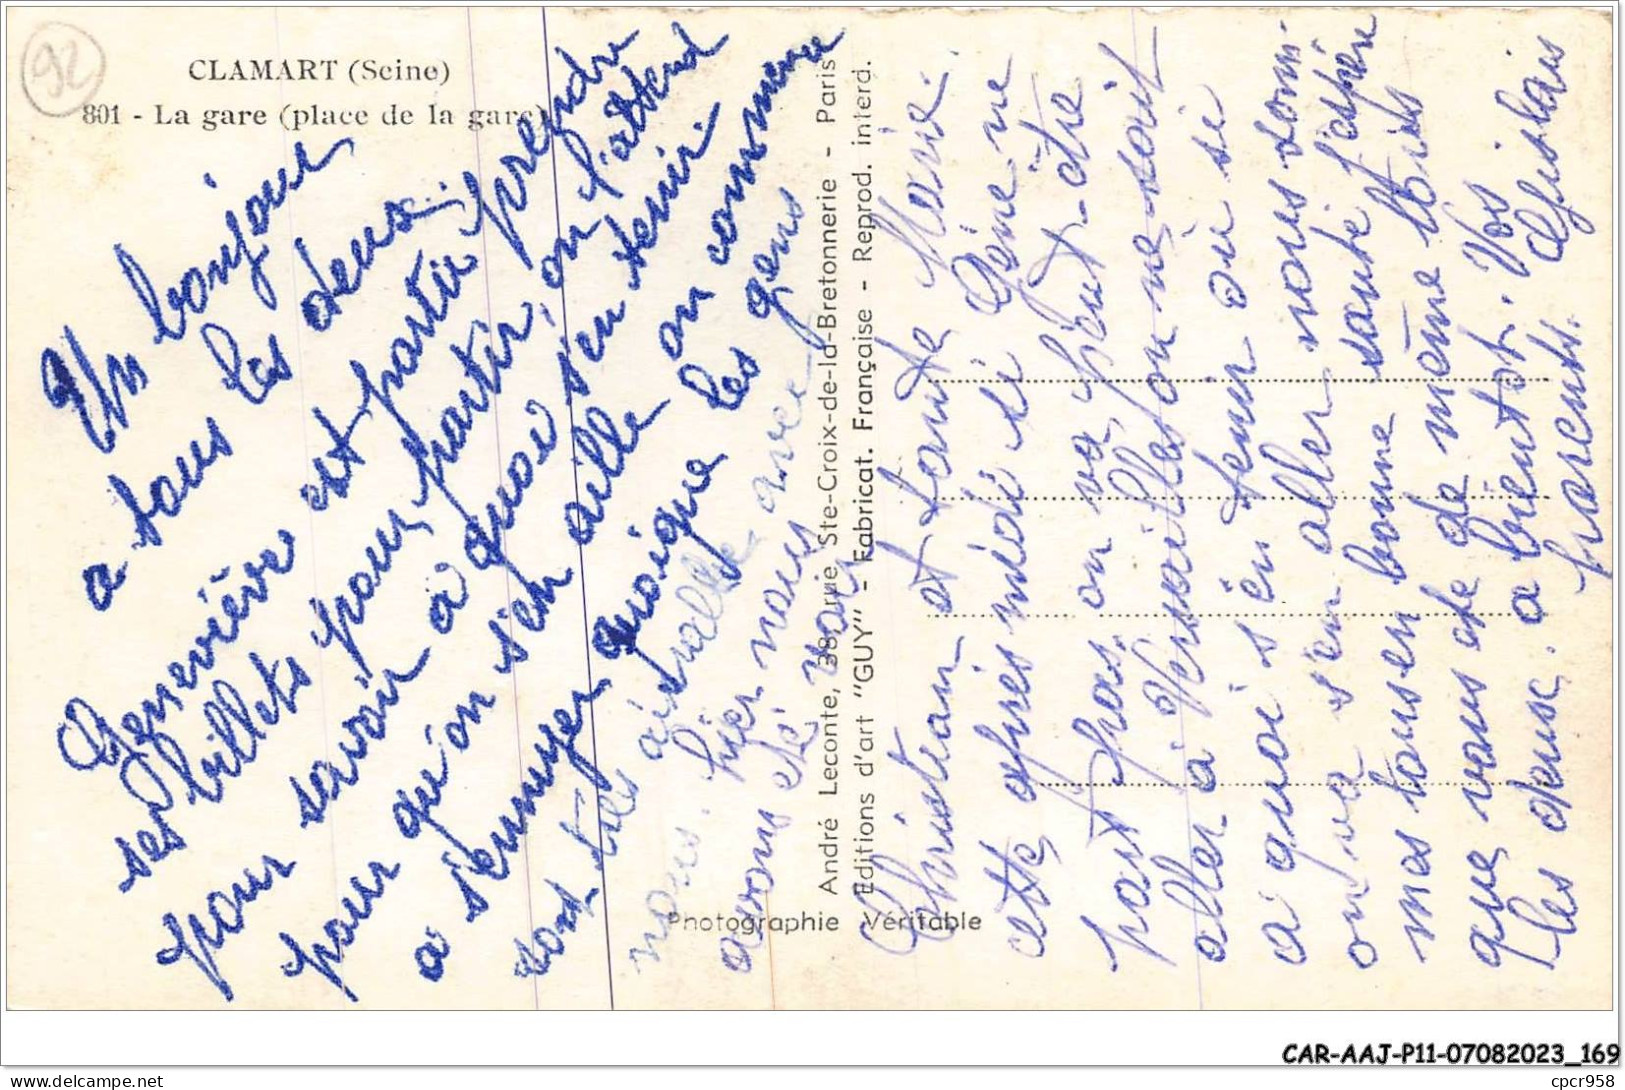 92
CLAMART (Seine)
801 - La gare (place de la gare)
Un bonjour
a tous les deux.
Geneviève est partie prendre
ses billets pour partir, on l'attend
pour savoir a quoi s'en tenir
pour qu'on s'en aille on commence
a s'ennuyer, quoique les gens
sont très avec
nous. hier nous
avons été voir
André Leconte, 38, rue Ste-Croix-de-la-Bretonnerie - Paris
Editions d'art "GUY" - Fabricat. Française - Reprod. interd.
Photographie Véritable
Christian et tante Marie.
cette après midi si Gène ne
part pas, on va peut-être
aller à Versailles on ne sait
a quoi s'en tenir où si
on va s'en aller nous sommes
tous en bonne santé j'espère
que vous de même bis
Les deux. a bientot. Vos
parents.
CAR-AAJ-P11-07082023_169
cpcr958